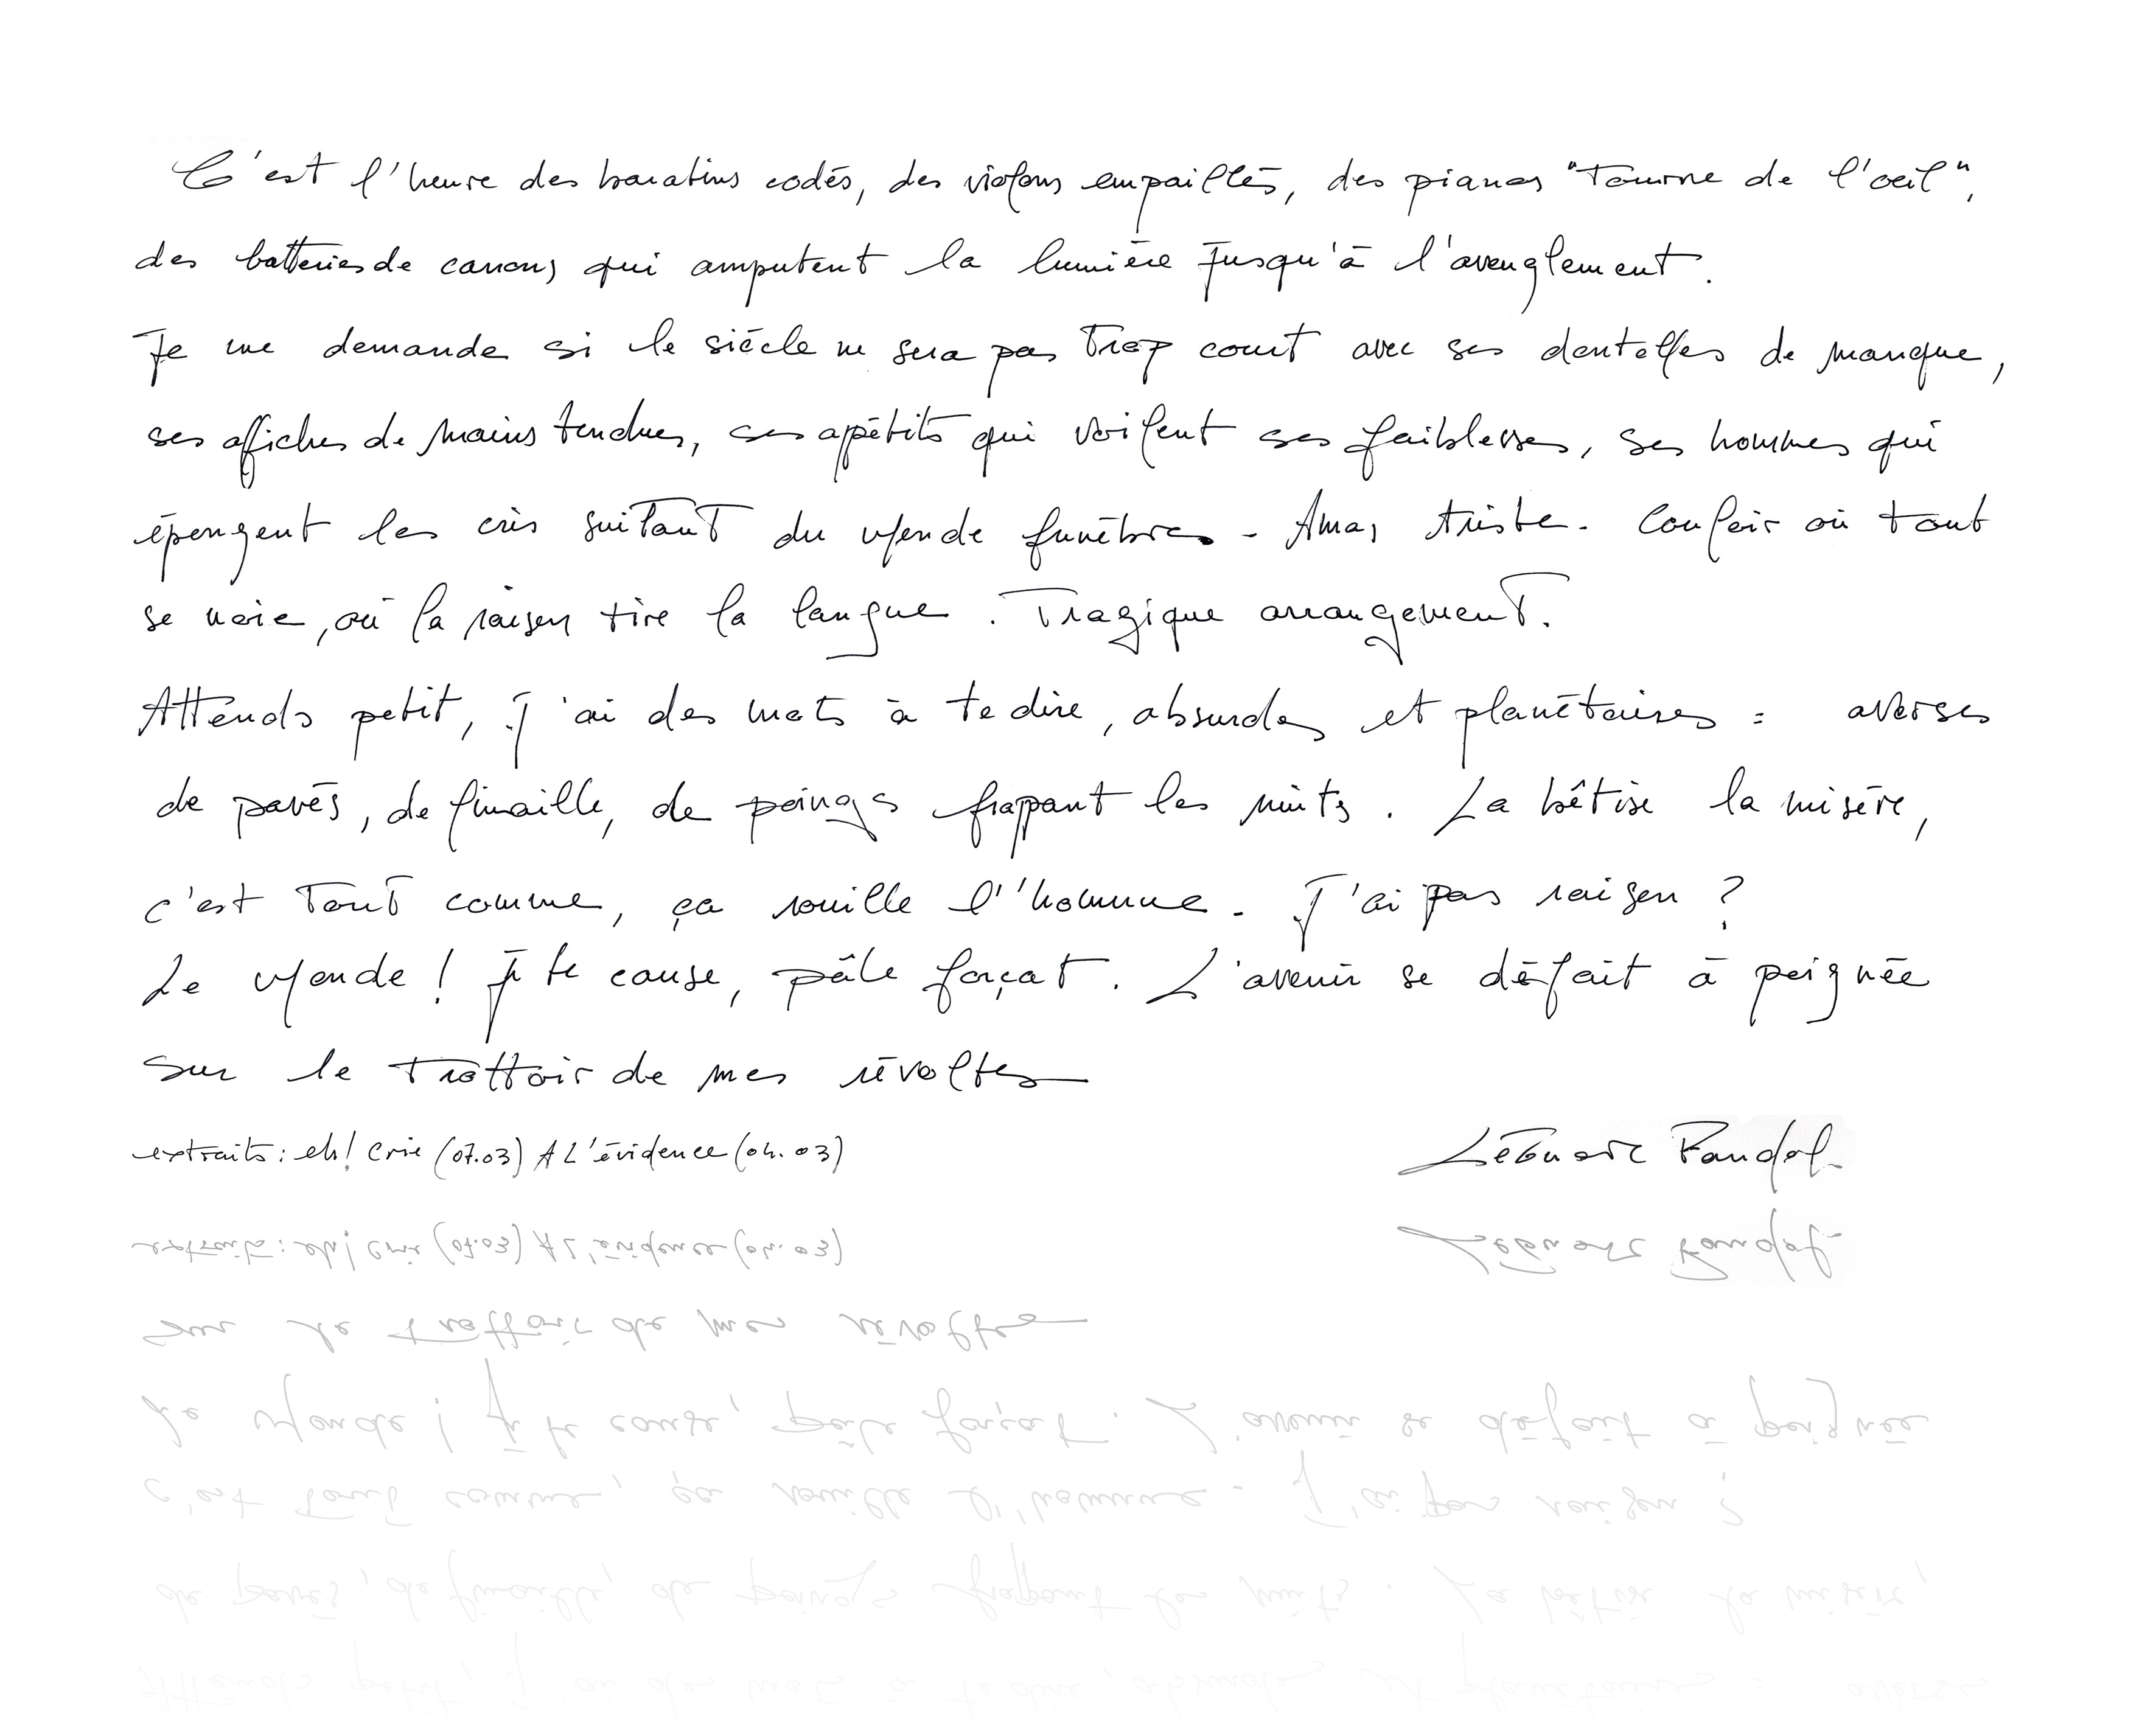 C'est l'heure des baratins codés, des violons empaillés, des pianos "Tourne de l'oeil",
des batteries de canons qui amputent la lumière jusqu'à l'aveuglement.
Je me demande si le siècle ne sera pas trop court avec ses dentelles de manque,
ses affiches de mains tendues, ses apétits qui voilent ses faiblesses, ses hommes qui
épongent les cris suitant du Monde funèbre. Amas triste. Couloir où tout
se noie, où la raison tire la langue. Tragique arrangement.
Attends petit, j'ai des mots à te dire, absurdes et planétaires : averses
de pavés, de limaille, de poings frappant les nuits. La bêtise la misère,
c'est tout comme, ça rouille l'homme. J'ai pas raison ?
Le Monde ! Je te cause, pâle forçat. L'avenir se défait à peignée
sur le trottoir de mes révoltes
extraits : eh! Crie (07.03) A L'évidence (04.03)
Léonard Pandol